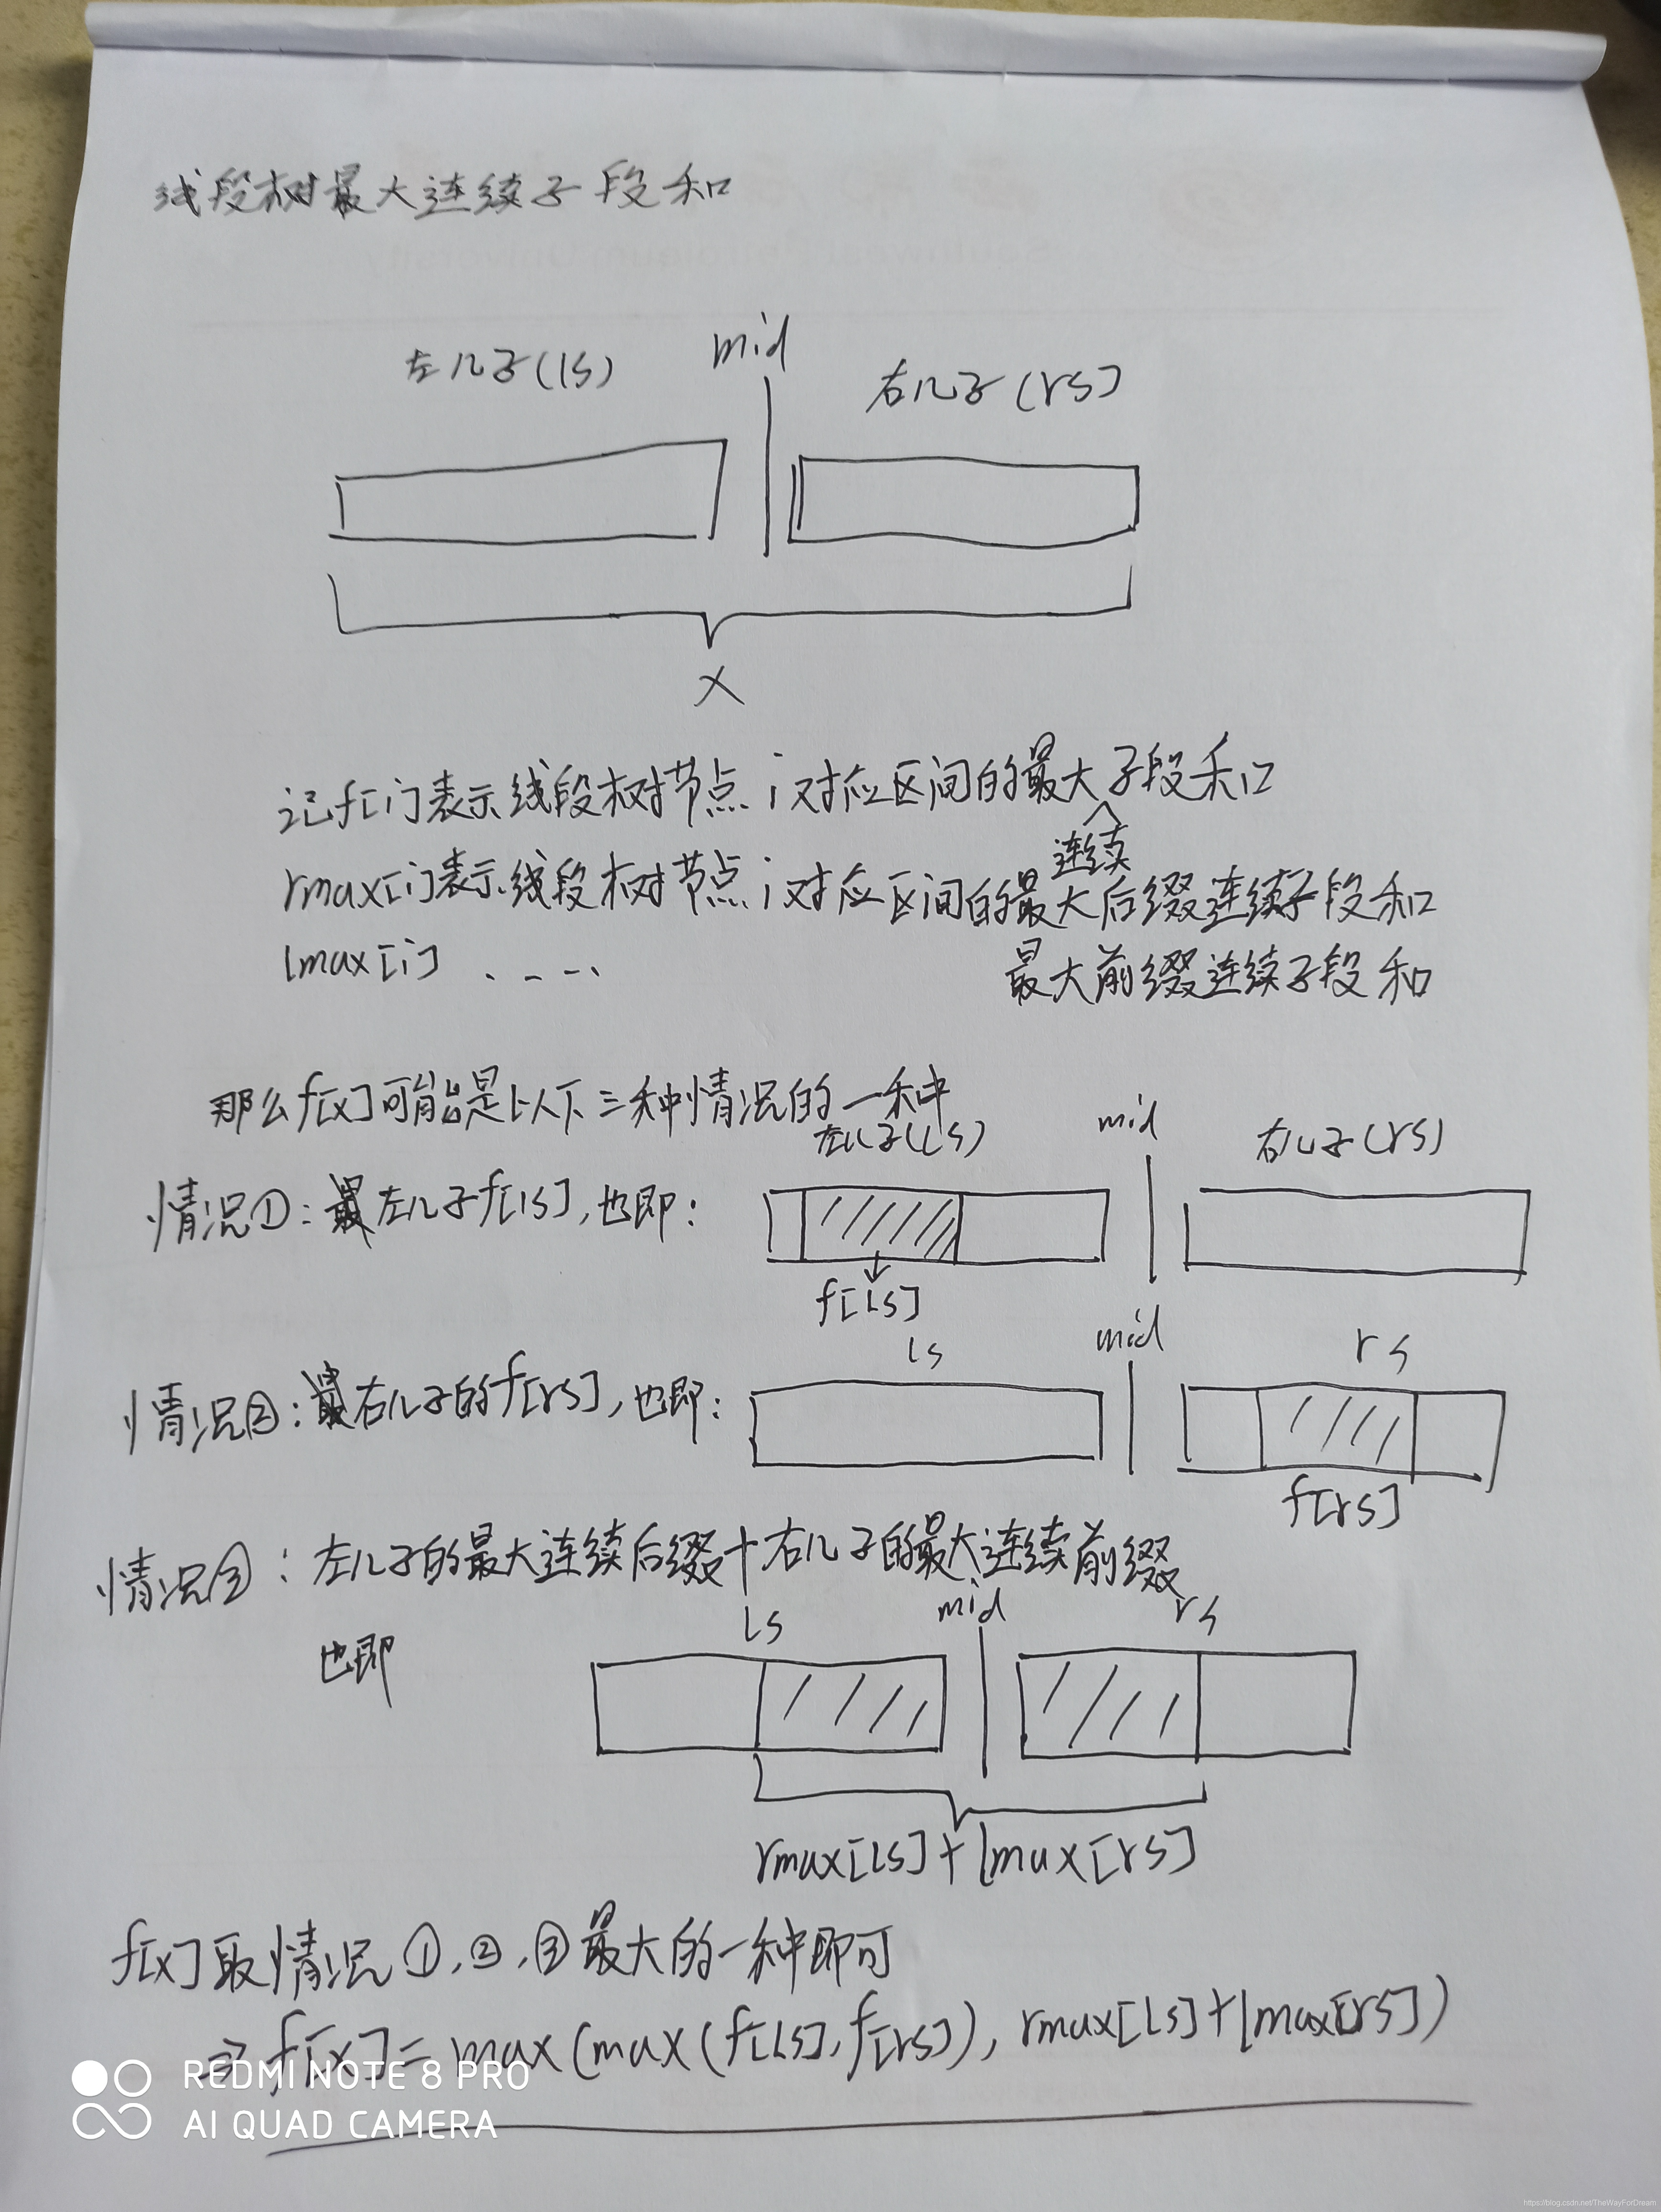 线段树最大连续子段和
左儿子(ls) mid 右儿子(rs)
x
记f[i]表示线段树节点i对应区间的最大子段和
连续
rmax[i]表示线段树节点i对应区间的最大后缀连续子段和
lmax[i] ..... 最大前缀连续子段和
那么f[x]可能是以下三种情况的一种
左儿子(ls) mid 右儿子(rs)
情况①:左儿子f[ls],也即:
f[ls]
ls mid rs
情况②:右儿子的f[rs],也即:
f[rs]
情况③:左儿子的最大连续后缀+右儿子的最大连续前缀
ls mid rs
也即
rmax[ls]+lmax[rs]
f[x]取情况①,②,③最大的一种即可
⇒f[x]=max(max(f[ls],f[rs]),rmax[ls]+lmax[rs])
REDMI NOTE 8 PRO
AI QUAD CAMERA
https://blog.csdn.net/TheWayForDream